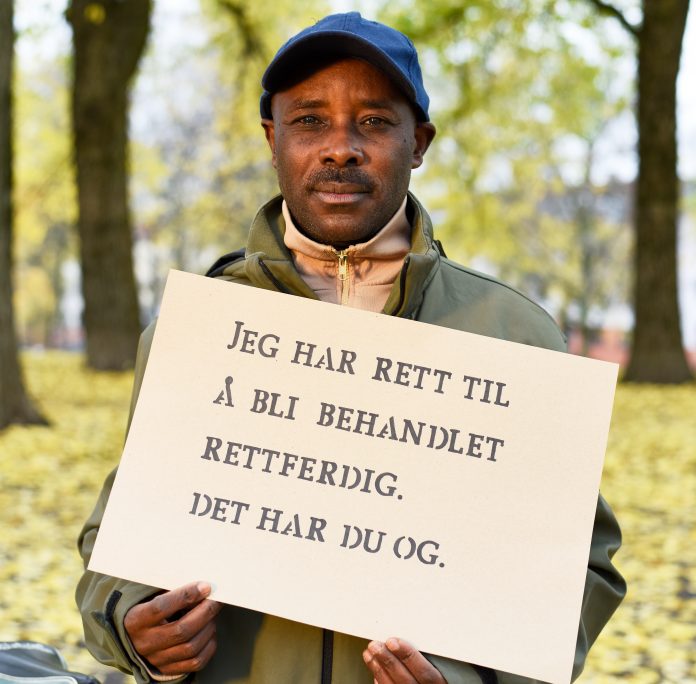 JEG HAR RETT TIL
Å BLI BEHANDLET
RETTFERDIG.
DET HAR DU OG.